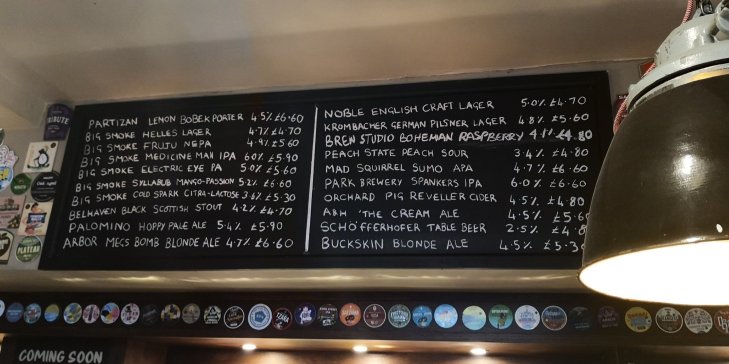 PARTIZAN LEMON BOBEK PORTER 4.5% £6.60
BIG SMOKE HELLES LAGER 4.7% £4.70
BIG SMOKE FRUJU NEPA 4.9% £5.60
BIG SMOKE MEDICINE MAN IPA 6.0% £5.90
BIG SMOKE ELECTRIC EYE PA 5.0% £5.60
BIG SMOKE SYLLABUB MANGO-PASSION 5.2% £6.60
BIG SMOKE COLD SPARK CITRA-LACTOSE 3.6% £5.30
BELHAVEN BLACK SCOTTISH STOUT 4.2% £4.70
PALOMINO HOPPY PALE ALE 5.4% £5.90
ARBOR MEGS BOMB BLONDE ALE 4.7% £6.60
NOBLE ENGLISH CRAFT LAGER 5.0% £4.70
KROMBACHER GERMAN PILSNER LAGER 4.8% £5.60
BREW STUDIO BOHEMIAN RASPBERRY 4.1% £4.80
PEACH STATE PEACH SOUR 3.4% £4.80
MAD SQUIRREL SUMO APA 4.7% £6.60
PARK BREWERY SPANKERS IPA 6.0% £6.60
ORCHARD PIG REVELLER CIDER 4.5% £4.80
A&H 'THE CREAM ALE 4.5% £5.60
SCHÖFFERHOFER TABLE BEER 2.5% £4.8
BUCKSKIN BLONDE ALE 4.5% £5.30
TRIBUTE
PLATEAU
COMING SOON